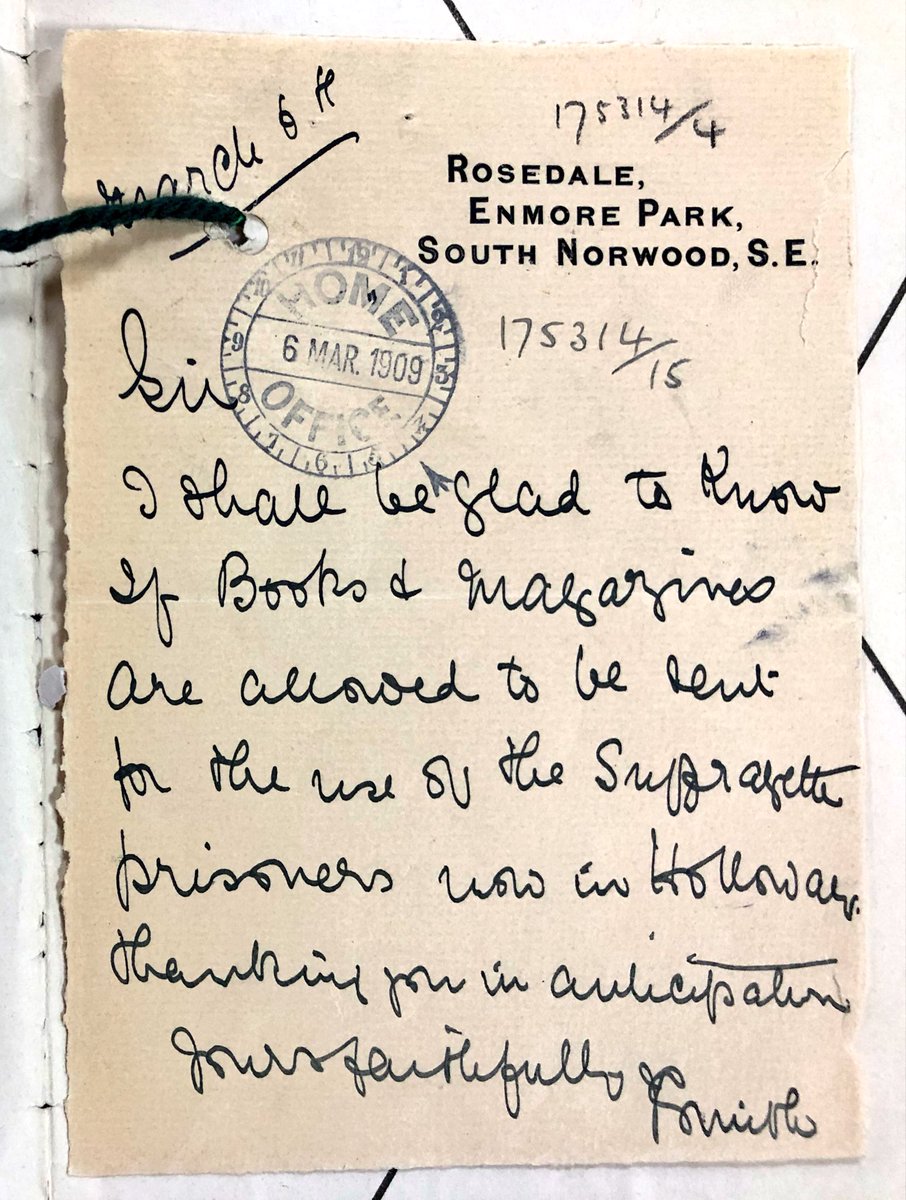 March 6th
175314/4
ROSEDALE,
ENMORE PARK,
SOUTH NORWOOD, S.E.
HOME
6 MAR. 1909
OFFICE
175314/15
Sir
I shall be glad to Know
If Books & Magazines
Are allowed to be sent
for the use of the Suffragette
prisoners now in Holloway.
thanking you in anticipation
Yours faithfully
Smith